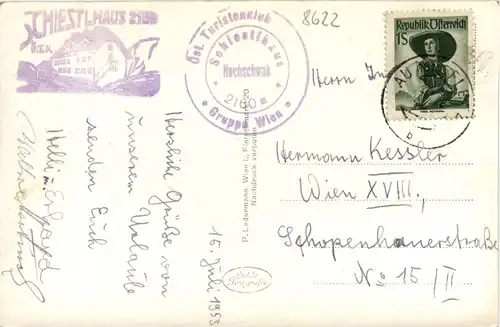 SCHIESTLHAUS 2153
Öst. Touristenklub
Schiestlhaus
Hochschwab
2160 m
Gruppe Wien
8622
Republik Österreich
1S
Herrn Ing.
Hermann Kessler
Wien XVIII,
Schopenhauerstraße
No 15/II
Herzliche Grüße von
unserem Urlaub
senden Euch
Helli u.
15. Juli 1953
P. Ledermann, Wien I., 20
Nachdruck verboten